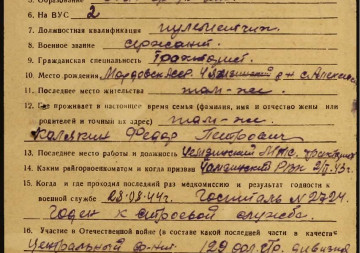 6. На ВУС 2
7. Должностная квалификация пулеметчик
8. Военное звание сержант
9. Гражданская специальность тракторист
10. Место рождения Мордовск. АССР, Чамзинский р-н с. Алексе
11. Последнее место жительства там-же
12. Где проживает в настоящее время семья (фамилия, имя и отчество жены или
родителей и точный их адрес) там-же
Калякин Федор Петрович
13. Последнее место работы и должность Чемзинский МТС, тракторист
14. Каким райгорвоенкоматом и когда призван Чамзинским РВК 2/I.43 г.
15. Когда и где проходил последний раз медкомиссию и результат годности к
военной службе 23.08.44г. Госпиталь № 2724.
Годен к строевой службе.
16. Участие в Отечественной войне (в составе какой последней части в качестве
Центральный фронт 129 дивизия